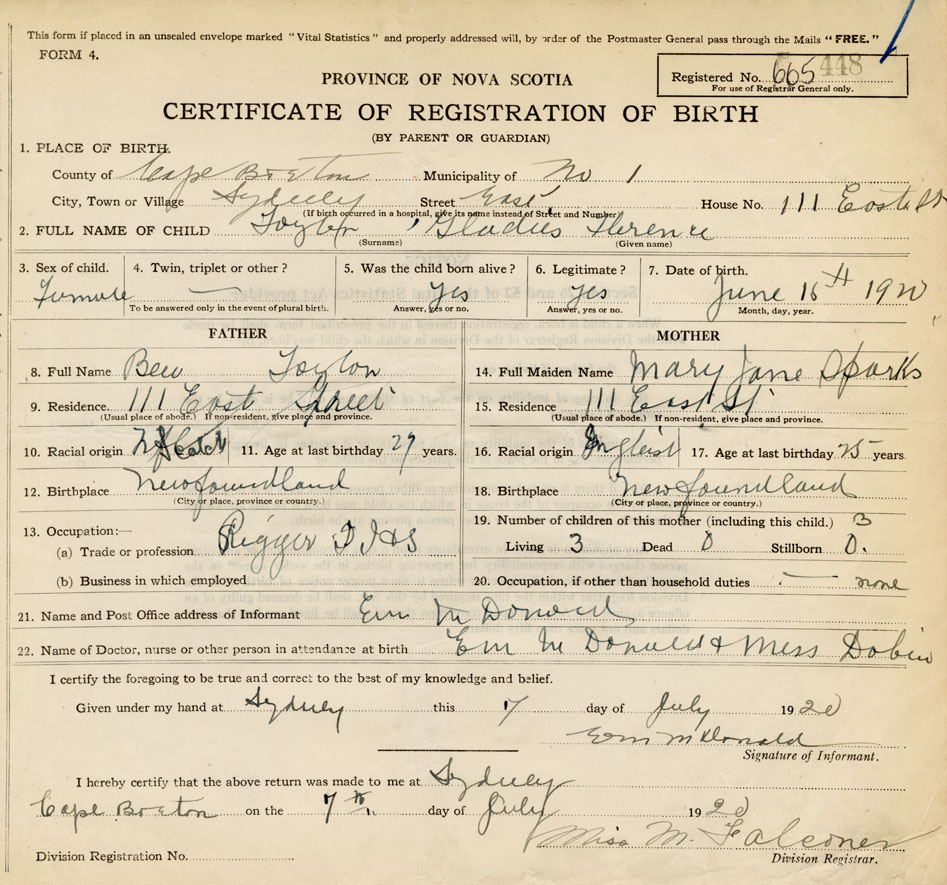 This form if placed in an unsealed envelope marked "Vital Statistics" and properly addressed will, by order of the Postmaster General pass through the Mails "FREE."
FORM 4.
PROVINCE OF NOVA SCOTIA
Registered No. 665 448
For use of Registrar General only.
CERTIFICATE OF REGISTRATION OF BIRTH
(BY PARENT OR GUARDIAN)
1. PLACE OF BIRTH.
County of Cape Breton Municipality of No 1
City, Town or Village Sydney Street East House No. 111 East St
(If birth occurred in a hospital, give its name instead of Street and Number)
2. FULL NAME OF CHILD Gladies Florence
(Surname) (Given name)
3. Sex of child. 4. Twin, triplet or other? 5. Was the child born alive? 6. Legitimate? 7. Date of birth.
Female — yes yes June 16th 1920
To be answered only in the event of plural birth. Answer, yes or no. Answer, yes or no. Month, day, year.
FATHER MOTHER
8. Full Name Ben 14. Full Maiden Name Mary Jane Sparks
9. Residence. 111 East Street 15. Residence. 111 East St
(Usual place of abode.) If non-resident, give place and province. (Usual place of abode.) If non-resident, give place and province.
10. Racial origin 11. Age at last birthday 29 years. 16. Racial origin English 17. Age at last birthday 25 years
12. Birthplace Newfoundland 18. Birthplace Newfoundland
(City or place, province or country.) (City or place, province or country.)
13. Occupation:— 19. Number of children of this mother (including this child.) 3
(a) Trade or profession Rigger D I & S Living 3 Dead 0 Stillborn 0.
(b) Business in which employed 20. Occupation, if other than household duties — none
21. Name and Post Office address of Informant McDonald
22. Name of Doctor, nurse or other person in attendance at birth McDonald & Miss Dobin
I certify the foregoing to be true and correct to the best of my knowledge and belief.
Given under my hand at Sydney this 7 day of July 1920
McDonald
Signature of Informant.
I hereby certify that the above return was made to me at Sydney
Cape Breton on the 7th day of July 1920
Miss M. Falconer
Division Registration No.
Division Registrar.